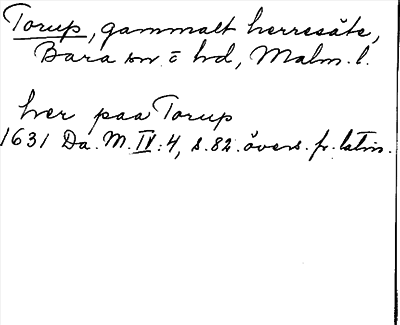 Torup, gammalt herresäte,
Bara sn o hd, Malm. l.
her paa Torup
1631 Da. M. IV:4, s. 82. övers. fr. latin.